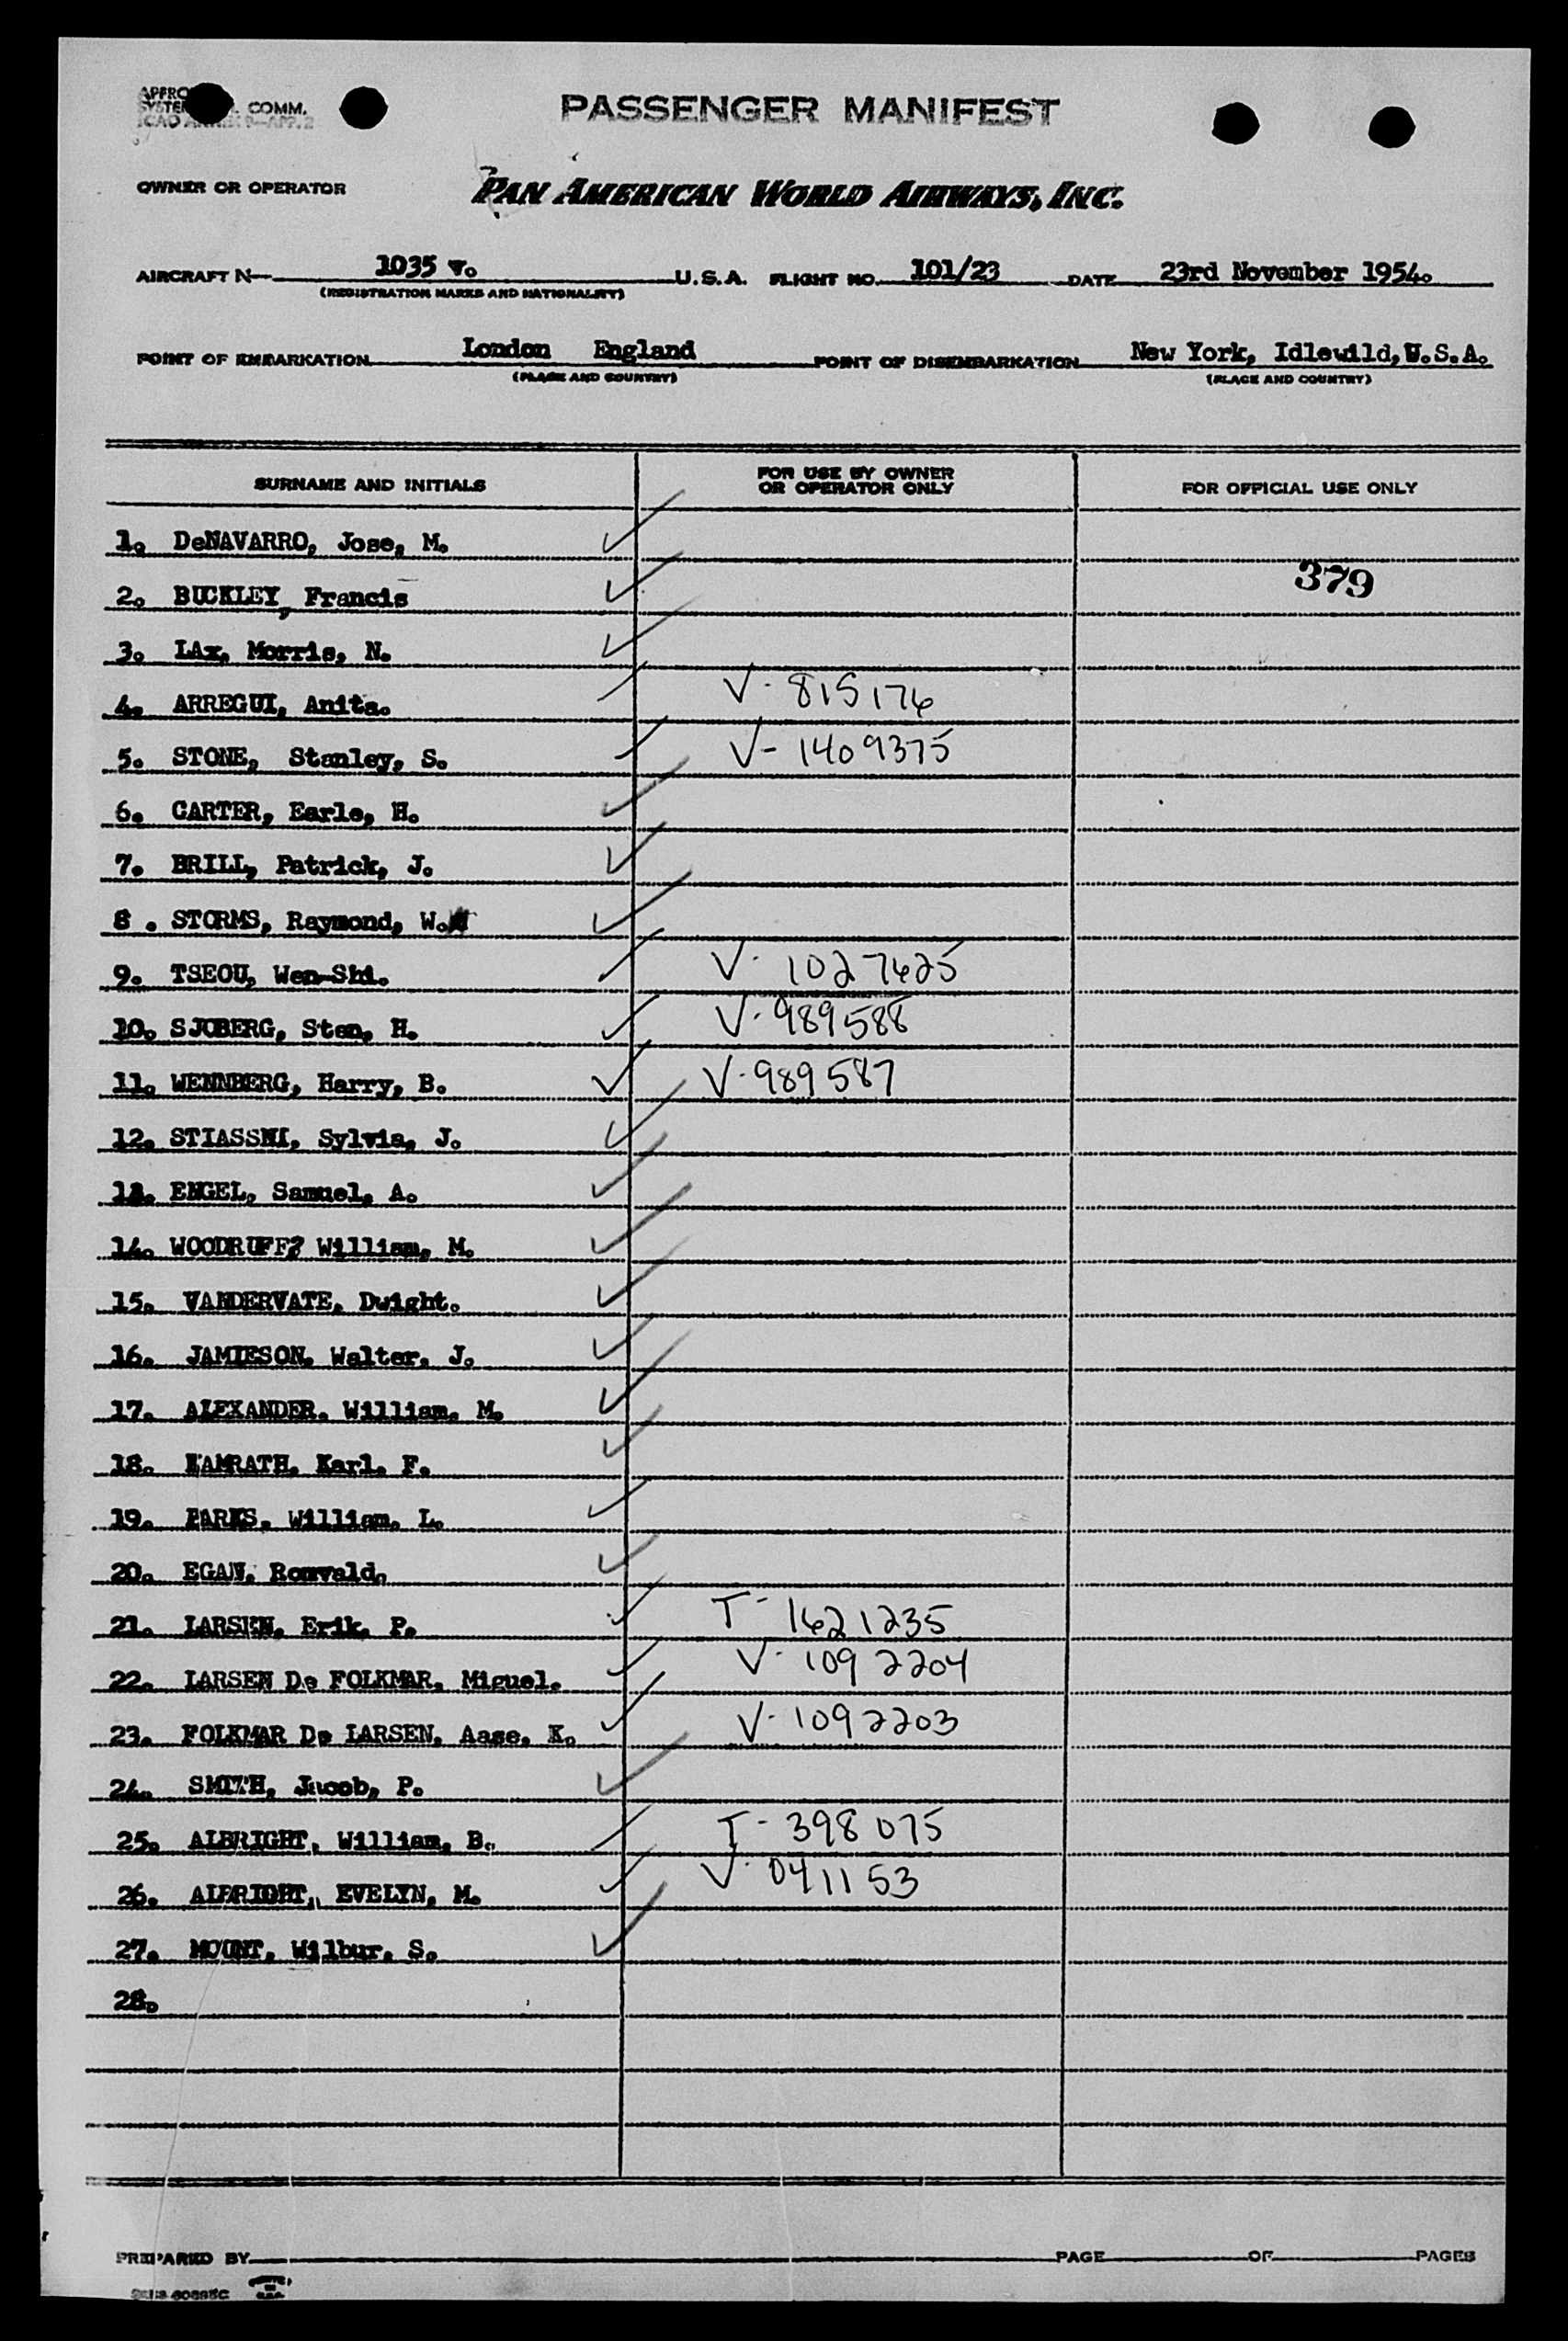 COMM.
PASSENGER MANIFEST
OWNER OR OPERATOR PAN AMERICAN WORLD AIRWAYS, INC.
AIRCRAFT N— 1035 V. U.S.A. FLIGHT NO. 101/23 DATE 23rd November 1954.
(REGISTRATION MARKS AND NATIONALITY)
POINT OF EMBARKATION London England POINT OF DISEMBARKATION New York, Idlewild, U.S.A.
(PLACE AND COUNTRY) (PLACE AND COUNTRY)
SURNAME AND INITIALS FOR USE BY OWNER OR OPERATOR ONLY FOR OFFICIAL USE ONLY
1. DeNAVARRO, Jose, M.
379
2. BUCKLEY, Francis
3. LAx, Morris, N.
4. ARREGUI, Anita. V- 815176
5. STONE, Stanley, S. V- 1409375
6. CARTER, Earle, H.
7. BRILL, Patrick, J.
8 . STORMS, Raymond, W.
9. TSEOU, Wen-Shi. V- 1027625
10. SJOBERG, Sten, H. V- 989588
11. WENNBERG, Harry, B. V- 989587
12. STIASSNI, Sylvia, J.
13. ENGEL, Samuel, A.
14. WOODRUFF? William, M.
15. VANDERVATE, Dwight.
16. JAMIESON, Walter, J.
17. ALEXANDER, William, M.
18. KAMRATH, Karl, F.
19. PARKS, William, L.
20. EGAN, Romvald.
21. LARSEN, Erik, P. T- 1621235
22. LARSEN De FOLKMAR, Miguel. V- 1092204
23. FOLKMAR De LARSEN, Aase, K. V- 1092203
24. SMITH, Jacob, P.
25. ALBRIGHT, William, B. T- 398075
26. ALBRIGHT, EVELYN, M. V- 041153
27. MOUNT, Wilbur, S.
28.
PREPARED BY PAGE OF PAGES